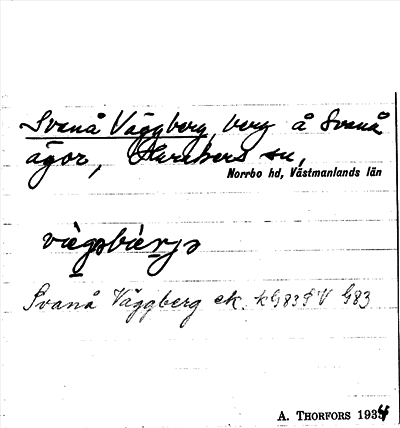 Svanå Väggberg, berg å Svanå
ägor, Haraker sn,
Norrbo hd, Västmanlands län
Svanå Väggberg ek.
A. Thorfors 1934